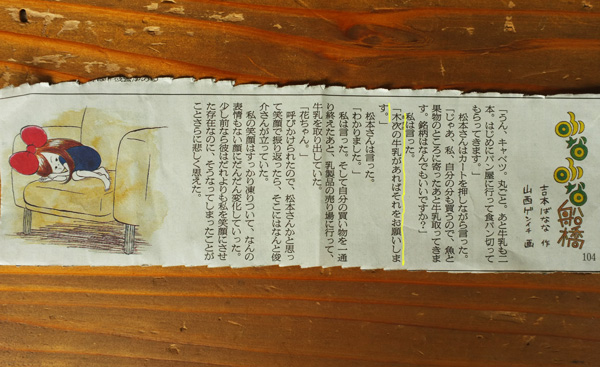 ふなふな船橋
吉本ばなな 作
山西ゲンイチ 画
104
「うん、キャベツ。丸ごと。あと牛乳も二
本。はじめにパン屋に行って食パン切って
もらってきます。」
松本さんはカートを押しながら言った。
「じゃあ、私、自分の分も買うので、魚と
果物のところに寄ったあと牛乳取ってきま
す。銘柄はなんでもいいですか?」
私は言った。
「木次の牛乳があればそれをお願いしま
す。」
松本さんは言った。
「わかりました。」
私は言った。そして自分の買い物を一通
り終えたあと、乳製品の売り場に行って、
牛乳を取り出していた。
「花ちゃん。」
呼びかけられたので、松本さんかと思っ
て笑顔で振り返ったら、そこにはなんと俊
介さんが立っていた。
私の笑顔はすっかり凍りついて、なんの
表情もない顔にだんだん変化していった。
少し前なら彼はだれよりも私を笑顔にさせ
た存在なのに、そうなってしまったことが
ことさらに悲しく思えた。